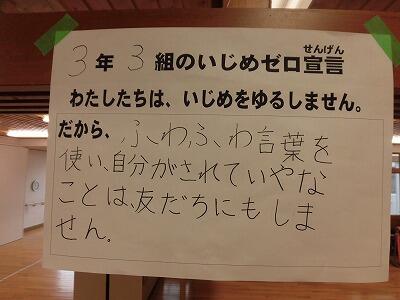 せんげん
3年3組のいじめゼロ宣言
わたしたちは、いじめをゆるしません。
だから、ふわふわ言葉を
使い、自分がされていやな
ことは、友だちにもしま
せん。